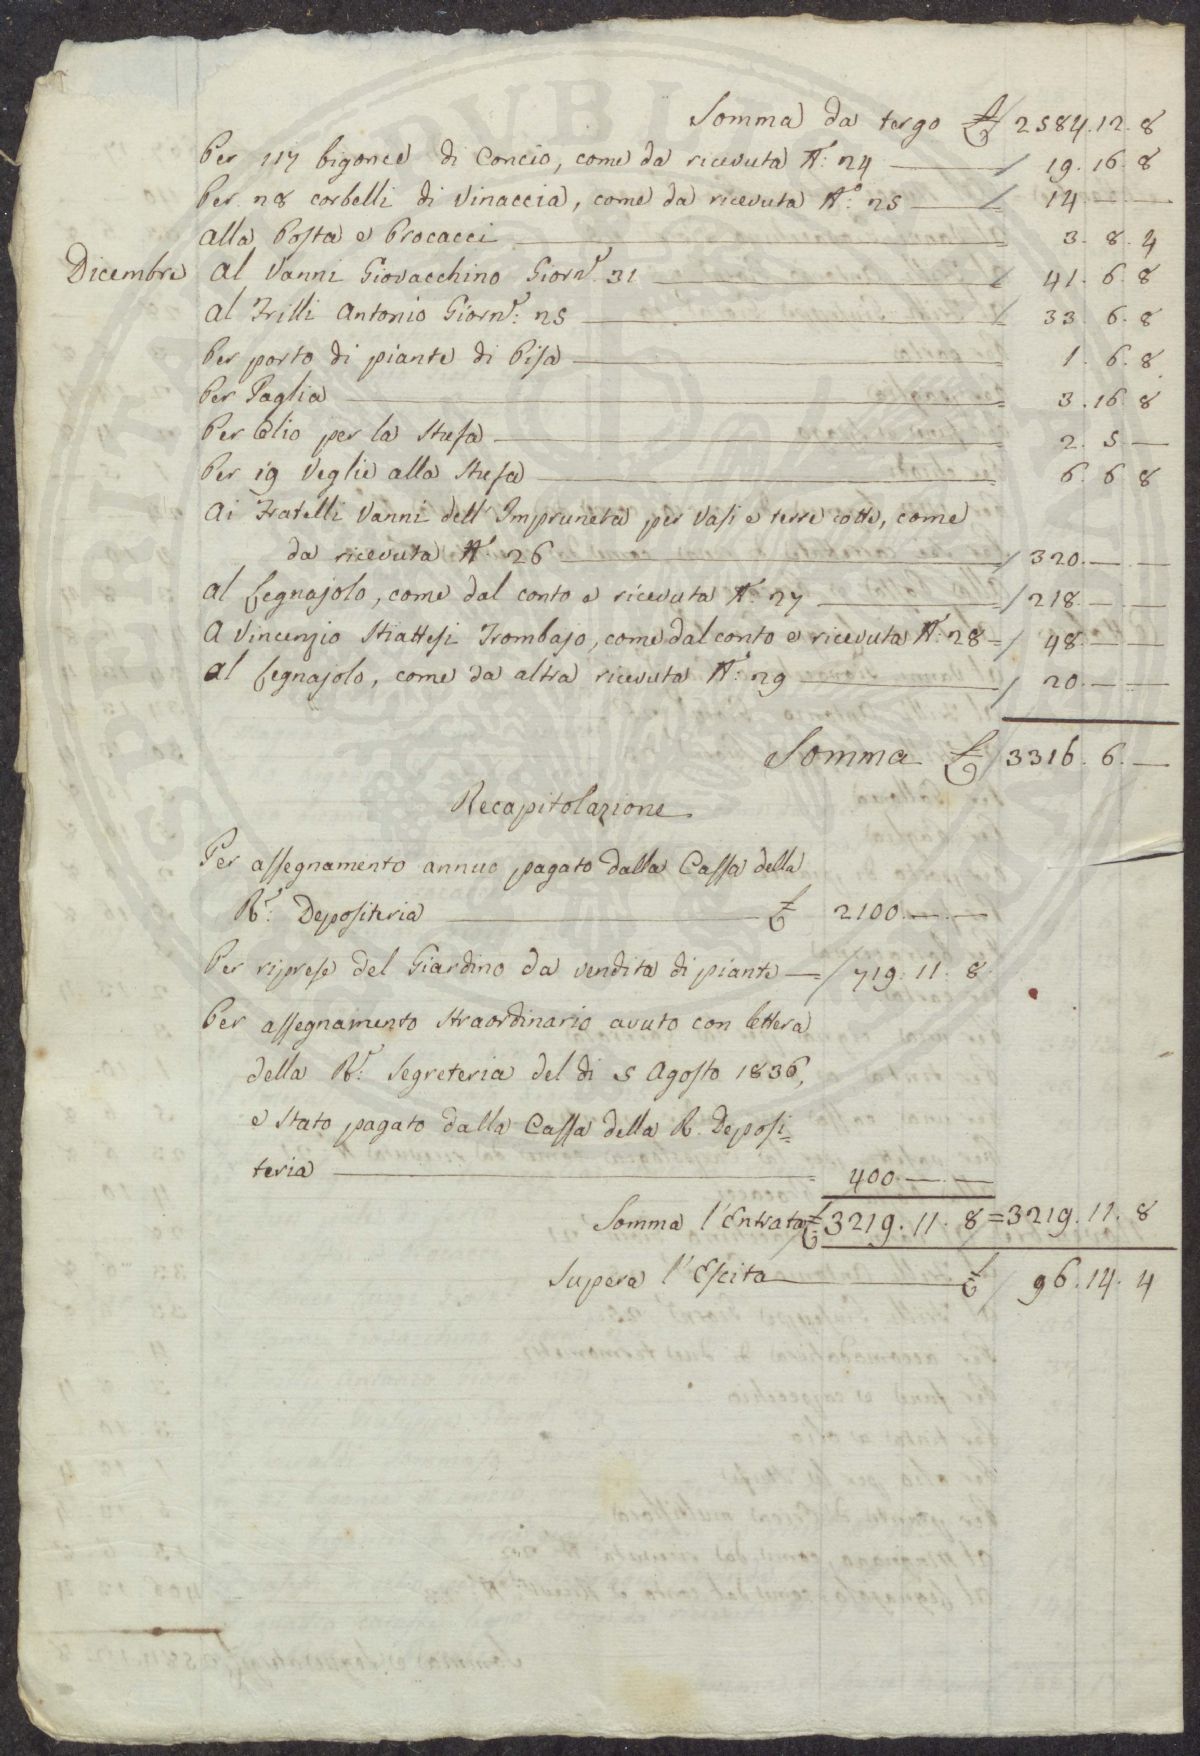 Somma da tergo £ 2584.12.8
Per 117 bigonce di Concio, come da ricevuta N.° 24 — / 19.16.8
Per 28 corbelli di Vinaccia, come da ricevuta N.° 25 — / 14 — —
Alla Posta e Procacci — 3.8.4
Dicembre Al Vanni Giovacchino Giorn.e 31 — / 41.6.8
Al Frilli Antonio Giorn.e 25 — / 33.6.8
Per porto di piante di Pisa — 1.6.8
Per Paglia — 3.16.8
Per Olio per la Stufa — 2.5.—
Per 19 Veglie alla Stufa — 6.6.8
Ai Fratelli Vanni dell'Impruneta per Vasi e terre cotte, come
da ricevuta N.° 26 — / 320.— —
Al Legnajolo, come dal conto e ricevuta N.° 27 — / 218.— —
A Vincenzio Stiattesi Trombajo, come dal conto e ricevuta N.° 28 = / 48.— —
Al Legnajolo, come da altra ricevuta N.° 29 — / 20.— —
Somma £ / 3316.6.—
Recapitolazione
Per assegnamento annuo pagato dalla Cassa della
R.e Depositeria — £ 2100.— —
Per riprese del Giardino da vendita di piante — / 719.11.8
Per assegnamento straordinario avuto con lettera
della R.e Segreteria del dì 5 Agosto 1836,
e stato pagato dalla Cassa della R. Deposi=
teria — 400.— —
Somma l'Entrata £ 3219.11.8 = 3219.11.8
Supera l'Escita — £ / 96.14.4